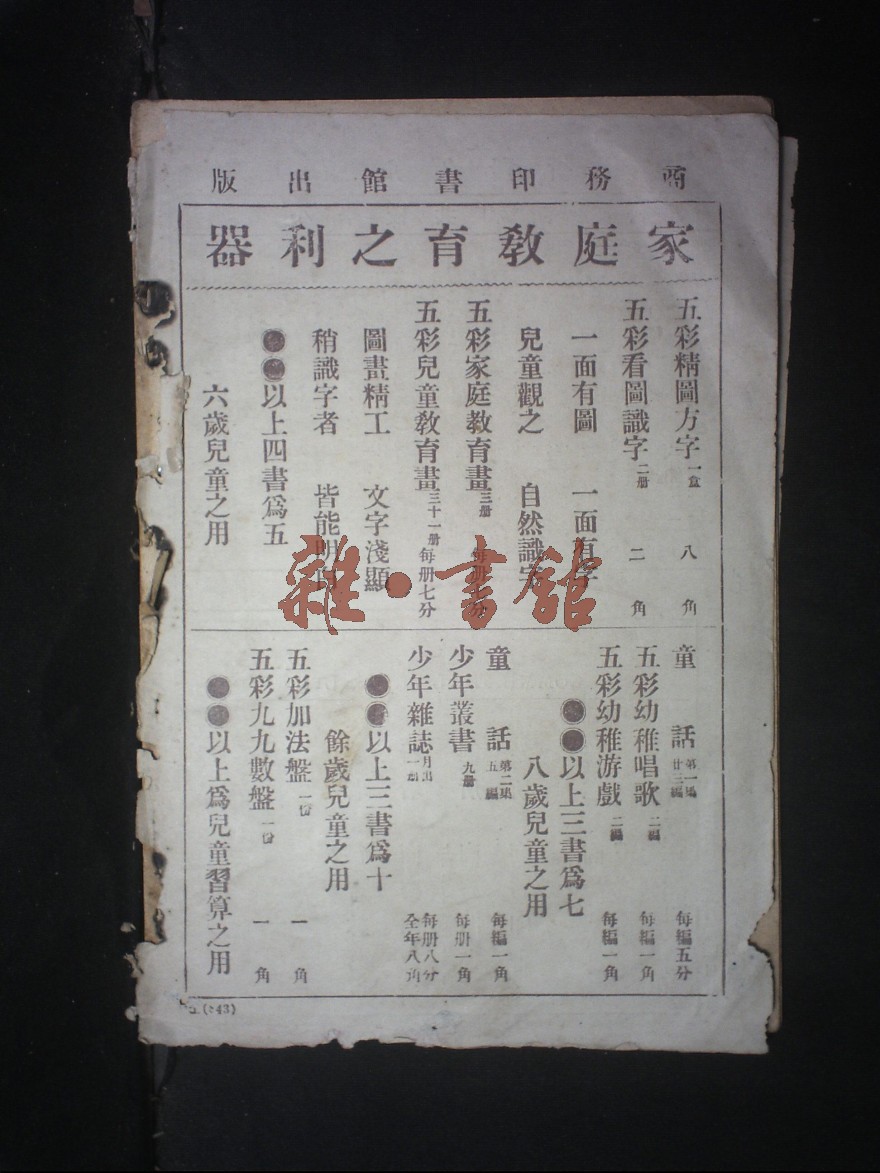 商務印書館出版
家庭教育之利器
五彩精圖方字 一盒 八角
五彩看圖識字 二册 二角
一面有圖 一面有字
兒童觀之 自然識字
五彩家庭教育畫 三册 每册七分
五彩兒童教育畫 三十一册 每册七分
圖畫精工 文字淺顯
稍識字者 皆能明白
●●以上四書爲五
六歲兒童之用
童話 第一集 廿三編 每編五分
五彩幼稚唱歌 二編 每編一角
五彩幼稚游戲 二編 每編一角
●●以上三書爲七
八歲兒童之用
童話 第二集 五編 每編一角
少年叢書 九册 每册一角
少年雜誌 月出一册 每册八分 全年八角
●●以上三書爲十
餘歲兒童之用
五彩加法盤 一份 一角
五彩九九數盤 一份 一角
●●以上爲兒童習算之用
(843)
雜·書館